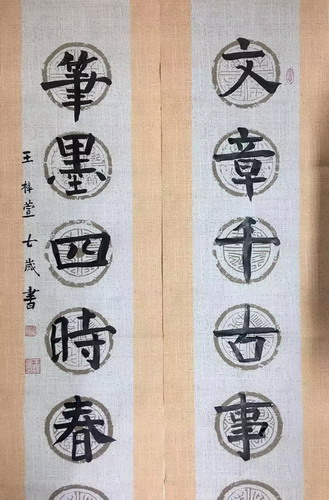 文章千古事
筆墨四時春
王梓萱七歲書